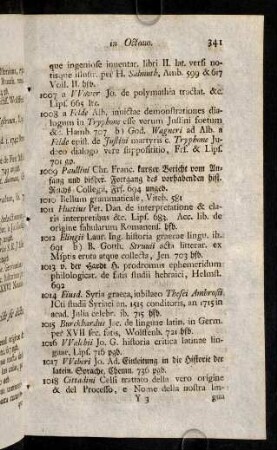 in Octauo. 341
que ingeniose inuentar. libri II. lat. versi no-
tisque illustr. per H. Salmuth, Amb. 599 & 617
Voll. II. bfb.
1007 a Wower Jo. de polymathia tractat. &c.
Lips. 665 ltr.
1008 a Felde Alb. inuictae demonstrationes dia-
logum in Tryphone esse verum Justini foetum
&c. Hamb. 707 b) God. Wagneri ad Alb. a
Felde epist. de Justini martyris c. Tryphone Ju-
daeo dialogo vere supposititio, Frf. & Lips.
701 gp.
1009 Paullini Chr. Franc. kurzer Bericht vom An-
fang und bisher. Fortgang des vorhabenden hist.
Reichs-Collegii, Frf. 694 ungeb.
1010 Bellum grammaticale, Viteb. 581
1011 Huetius Per. Dan. de interpretatione & cla-
ris interpretibus &c. Lips. 683. Acc. lib. de
origine fabularum Romanens. bfb.
1012 Elingii Laur. Ing. historia graecae lingu. ib.
691 b) B. Gotth. Struuii acta litterar. ex
Msptis eruta atque collecta, Jen. 703 bfb.
1013 v. der Hardt H. prodromus ephemeridum
philologicar. de fatis studii hebraici, Helmst.
692
1014 Eiusd. Syria graeca, iubilaeo Thesei Ambrosii
ICti studii Syriaci an. 1515 conditoris, an 1715 in
acad. Julia celebr. ib. 715 bfb.
1015 Burckhardin Jac. de linguae latin. in Germ.
per XVII sec. fatis, Wolffenb. 721 bfb.
1016 Walchii Jo. G. historia critica latinae lin-
guae. Lips. 716 pgb.
1017 Weberi Jo. Ad. Einleitung in die Historie der
latein. Sprache, Chemn. 736 pgb.
1018 Cittadini Celsi trattato della vero origine
& del Processo, e Nome della nostra lin-
Y 3 gua